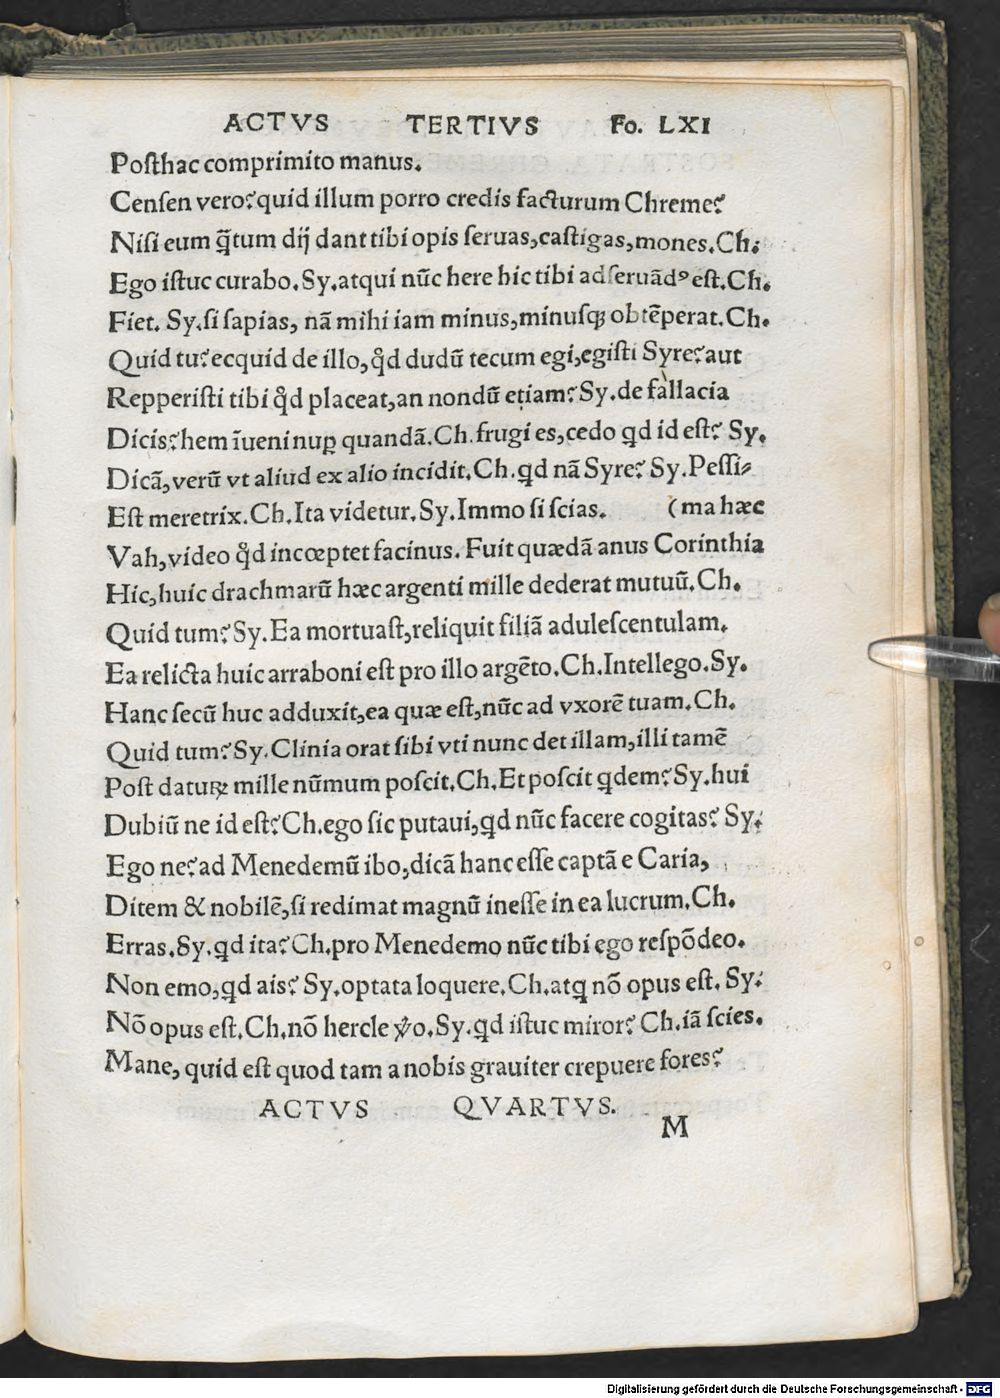 ACTVS TERTIVS Fo. LXI
Poſthac comprimito manus.
Cenſen vero? quid illum porro credis facturum Chreme?
Niſi eum q̄tum dij dant tibi opis ſeruas, caſtigas, mones. Ch.
Ego iſtuc curabo. Sy. atqui nūc here hic tibi adſeruādꝰ eſt. Ch.
Fiet. Sy. ſi ſapias, nā mihi iam minus, minuſqꝫ obtēperat. Ch.
Quid tu? ecquid de illo, qͥd dudū tecum egi, egiſti Syre? aut
Repperiſti tibi qͥd placeat, an nondū etiam? Sy. de fallacia
Dicis? hem īueni nuꝑ quandā. Ch. frugi es, cedo qd id eſt? Sy.
Dicā, verū vt aliud ex alio incidit. Ch. qd nā Syre? Sy. Peſſi-
Eſt meretrix. Ch. Ita videtur. Sy. Immo ſi ſcias. (ma hæc
Vah, video qͥd incœptet facinus. Fuit quædā anus Corinthia
Hic, huic drachmarū hæc argenti mille dederat mutuū. Ch.
Quid tum? Sy. Ea mortuaſt, reliquit filiā aduleſcentulam.
Ea relicta huic arraboni eſt pro illo argēto. Ch. Intellego. Sy.
Hanc ſecū huc adduxit, ea quæ eſt, nūc ad vxorē tuam. Ch.
Quid tum? Sy. Clinia orat ſibi vti nunc det illam, illi tamē
Poſt datuꝝ mille nūmum poſcit. Ch. Et poſcit qdem? Sy. hui
Dubiū ne id eſt? Ch. ego ſic putaui, qd nūc facere cogitas? Sy.
Ego ne? ad Menedemū ibo, dicā hanc eſſe captā e Caria,
Ditem & nobilē, ſi redimat magnū ineſſe in ea lucrum. Ch.
Erras. Sy. qd ita? Ch. pro Menedemo nūc tibi ego reſpōdeo.
Non emo, qd ais? Sy. optata loquere. Ch. atq nō opus eſt. Sy.
Nō opus eſt. Ch. nō hercle v̊o. Sy. qd iſtuc miror? Ch. iā ſcies.
Mane, quid eſt quod tam a nobis grauiter crepuere fores?
ACTVS QVARTVS.
M
Digitalisierung gefördert durch die Deutsche Forschungsgemeinschaft - DFG